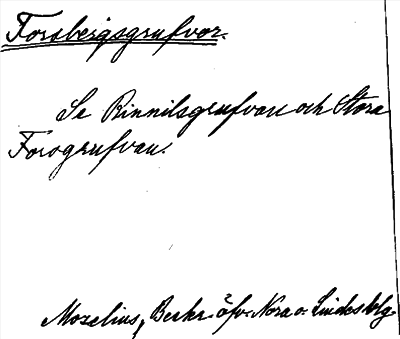 Forsbergsgrufvor.
Se Rinnilsgrufvan och Stora
Forsgrufvan.
Mozelius, Beskr. öfv. Nora o. Lindesblg